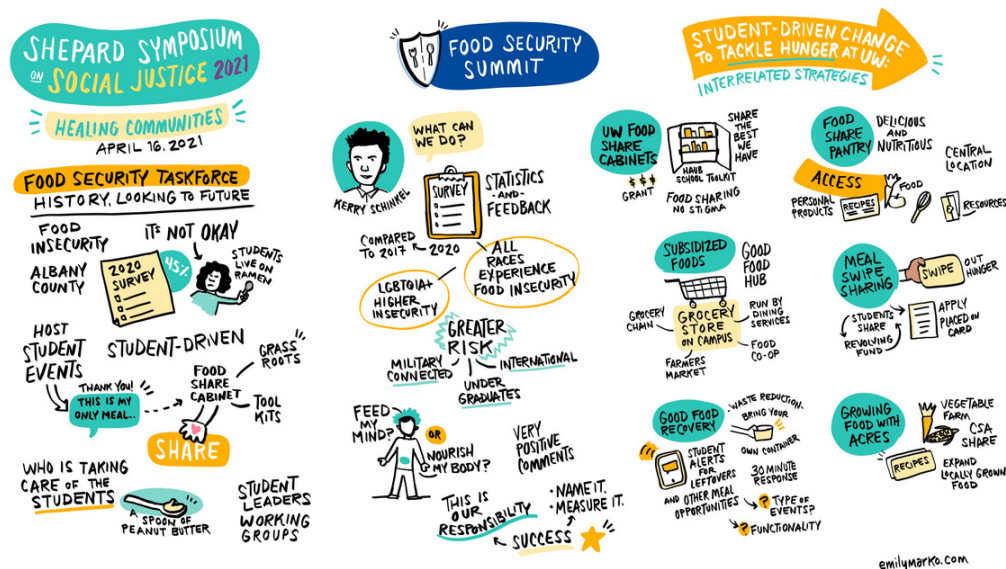 SHEPARD SYMPOSIUM
ON SOCIAL JUSTICE 2021
HEALING COMMUNITIES
APRIL 16, 2021
FOOD SECURITY TASKFORCE
HISTORY, LOOKING TO FUTURE
FOOD
INSECURITY
ALBANY
COUNTY
2020
SURVEY
IT'S NOT OKAY
45%
STUDENTS
LIVE ON
RAMEN
HOST
STUDENT
EVENTS
STUDENT-DRIVEN
THANK YOU!
THIS IS MY
ONLY MEAL...
FOOD
SHARE
CABINET
GRASS
ROOTS
TOOL
KITS
SHARE
WHO IS TAKING
CARE OF THE
STUDENTS
A SPOON OF
PEANUT BUTTER
STUDENT
LEADERS
WORKING
GROUPS
FOOD SECURITY
SUMMIT
KERRY SCHINKEL
WHAT CAN
WE DO?
SURVEY
STATISTICS
-AND-
FEEDBACK
COMPARED
TO 2017
2020
LGBTQIA+
HIGHER
INSECURITY
ALL
RACES
EXPERIENCE
FOOD INSECURITY
GREATER
RISK
MILITARY
CONNECTED
UNDER
GRADUATES
INTERNATIONAL
FEED
MY
MIND?
OR
NOURISH
MY BODY?
VERY
POSITIVE
COMMENTS
THIS IS
OUR
RESPONSIBILITY
• NAME IT.
• MEASURE IT.
SUCCESS
STUDENT-DRIVEN CHANGE
TO TACKLE HUNGER AT UW:
INTERRELATED STRATEGIES
UW FOOD
SHARE
CABINETS
$ $ $
GRANT
HAUB
SCHOOL TOOLKIT
SHARE
THE
BEST
WE
HAVE
FOOD SHARING
NO STIGMA
FOOD
SHARE
PANTRY
DELICIOUS
AND
NUTRITIOUS
CENTRAL
LOCATION
ACCESS
PERSONAL
PRODUCTS
RECIPES
FOOD
RESOURCES
SUBSIDIZED
FOODS
GOOD
FOOD
HUB
GROCERY
CHAIN
GROCERY
STORE
ON CAMPUS
RUN BY
DINING
SERVICES
FARMERS
MARKET
FOOD
CO-OP
MEAL
SWIPE
SHARING
SWIPE
OUT
HUNGER
STUDENTS
SHARE
REVOLVING
FUND
APPLY
PLACED ON
CARD
GOOD FOOD
RECOVERY
WASTE REDUCTION-
BRING YOUR
OWN CONTAINER
STUDENT
ALERTS
FOR
LEFTOVERS
AND OTHER MEAL
OPPORTUNITIES
30 MINUTE
RESPONSE
? TYPE OF
EVENTS?
? FUNCTIONALITY
GROWING
FOOD WITH
ACRES
VEGETABLE
FARM
CSA
SHARE
RECIPES
EXPAND
LOCALLY GROWN
FOOD
emilymarko.com